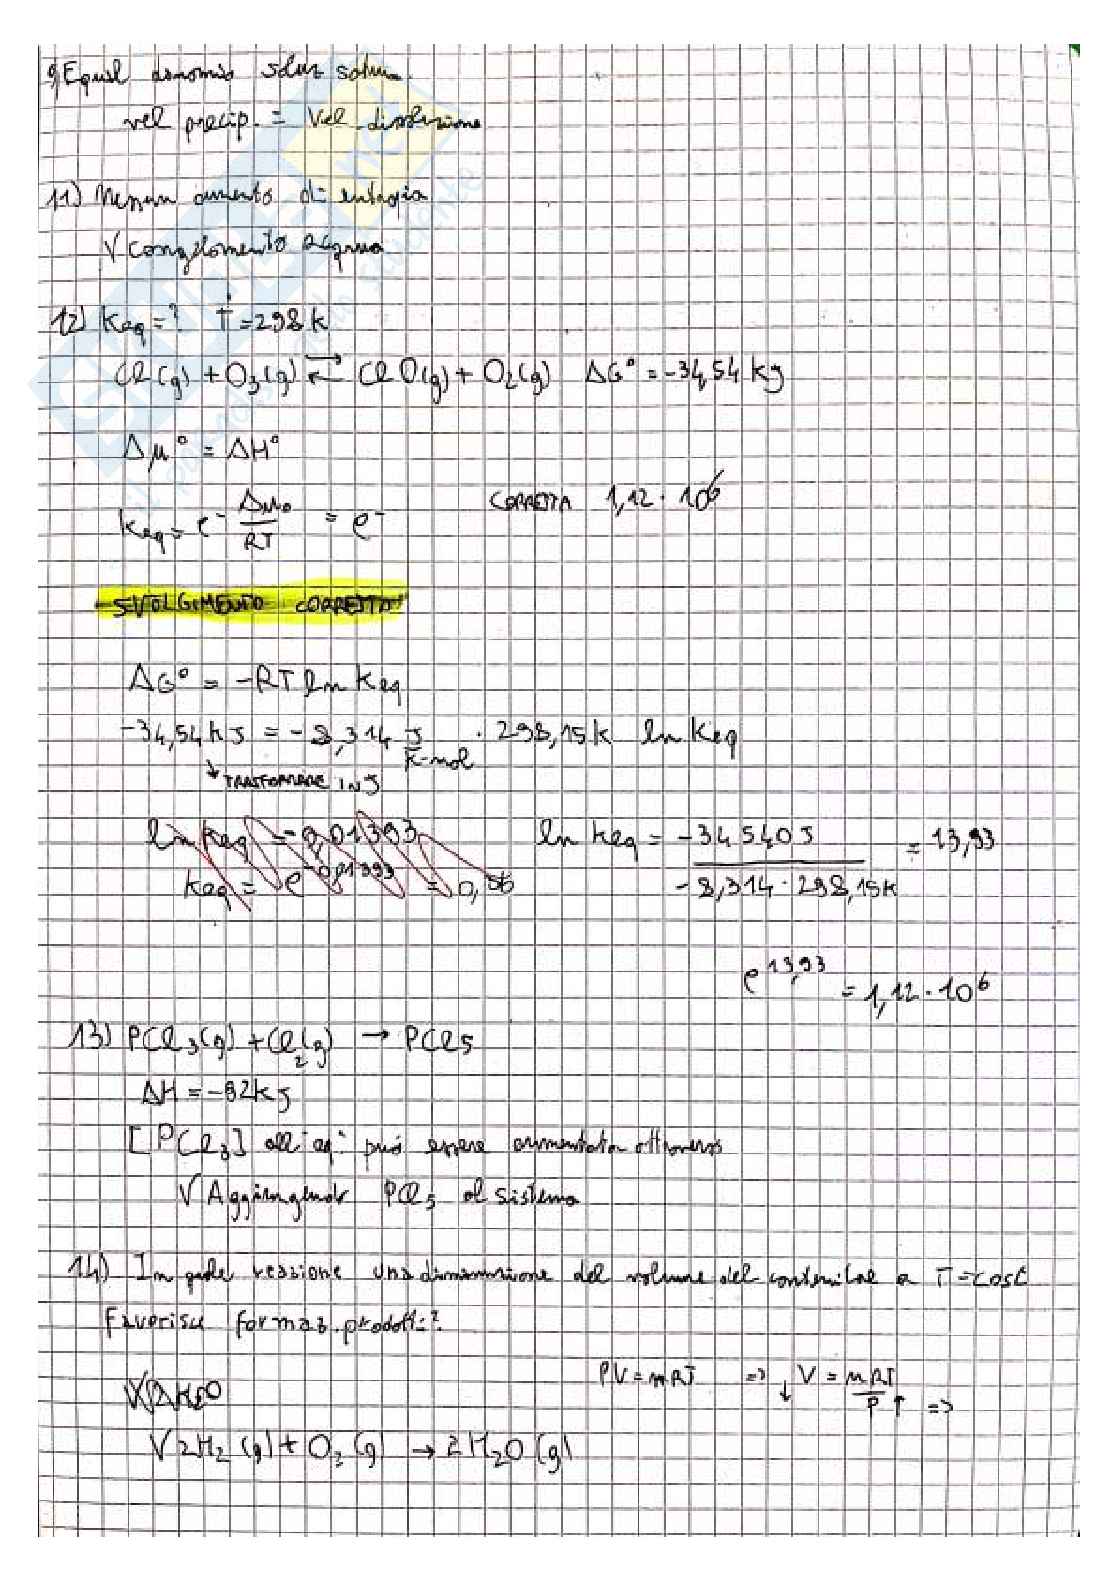 9) Equil dinamico soluz satura
vel precip. = Vel dissoluzione
11) Nessun aumento di entropia
V congelamento acqua
12) Keq = ? T = 298 K
Cl(g) + O3(g) ⇄ ClO(g) + O2(g) ΔG° = -34,54 kJ
Δμ° = ΔH°
Keq = e^- Δμ°/RT = e^-
CORRETTA 1,12 · 10^6
SVOLGIMENTO CORRETTO
ΔG° = -RT ln Keq
-34,54 kJ = -8,314 J/K·mol · 298,15 K ln Keq
↓ TRASFORMARE IN J
ln Keq = 0,01393
Keq = e^-0,01393 = 0,
ln Keq = -34540 J / -8,314 · 298,15 K = 13,93
e^13,93 = 1,12 · 10^6
13) PCl3(g) + Cl2(g) → PCl5
ΔH = -92 kJ
[PCl3] all'eq. può essere aumentata attraverso
V Aggiungendo PCl5 al sistema
14) In quale reazione una diminuzione del volume del contenitore a T = cost
Favorisce formaz. prodotti?
PV = nRT => ↓ V = nRT/P ↑ =>
V 2H2(g) + O2(g) → 2H2O(g)